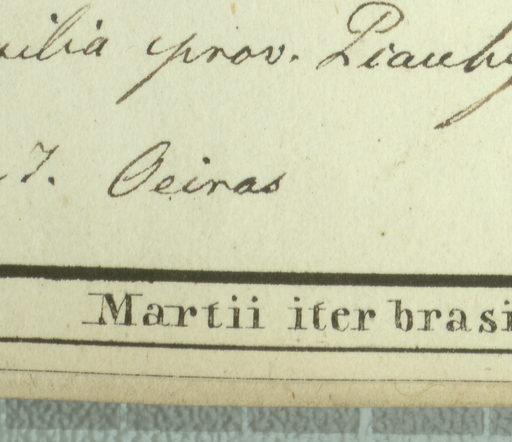 silia prov. Piauhy
7. Oeiras
Martii iter brasi